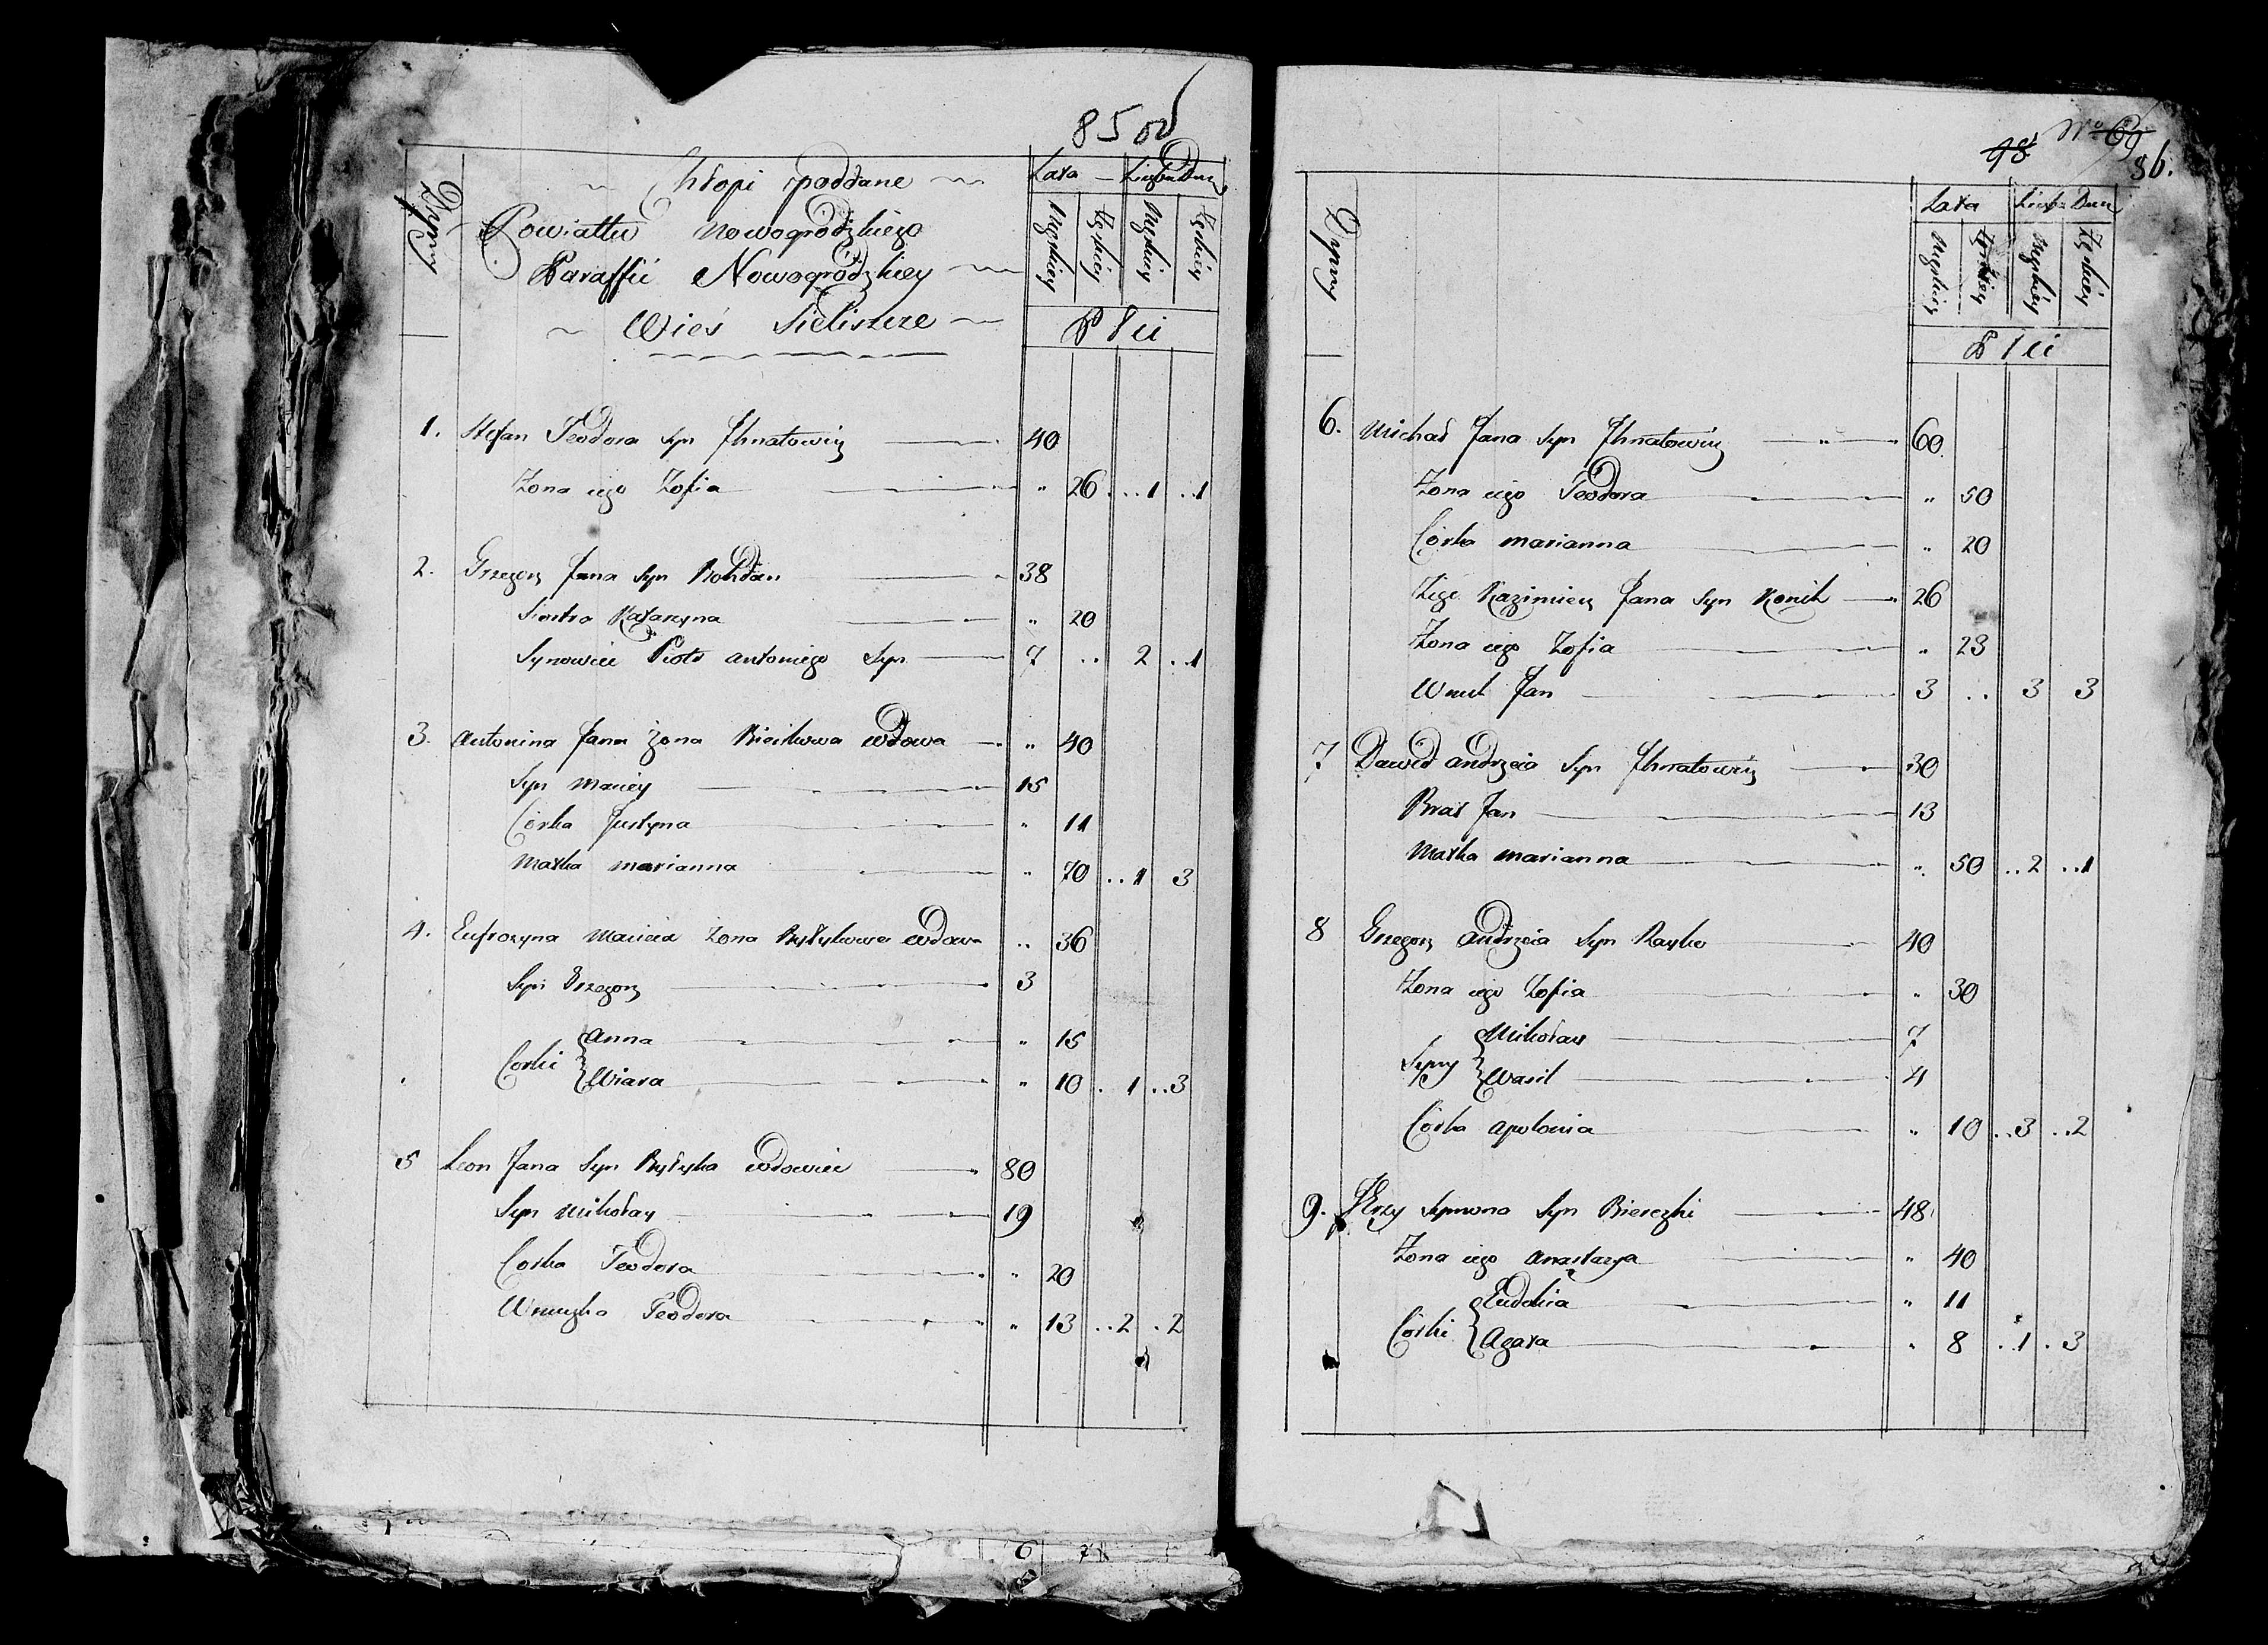 85 об
Chłopi poddane
Powiattu Nowogródzkiego
Paraffii Nowogródzkiey
Wieś Sieliszcze
Dymy
Lata Liczba Dusz
Męzkiey Żęńskiey Męzkiey Żęńskiey
Płci
1. Stefan Teodora Syn Jhnatowicz 40
Żona iego Zofia " 26 .. 1 .. 1
2. Grzegorz Jana Syn Bohdan 38
Siostra Katarzyna " 20
Synowiec Piotr Antoniego Syn 7 .. 2 .. 1
3. Antonina Jana żona wdowa " 40
Syn Maciey 15
Córka Justyna " 11
Matka Marianna " 70 .. 1 3
4. Eufrozyna Macieia Żona wdowa .. 36
Syn Grzegorz 3
Corki { Anna " 15
{ Wiara " 10 . 1 .. 3
5 Leon Jana Syn wdowiec 80
Syn Mikołay 19
Corka Teodora " 20
Wnuczka Teodora " 13 .. 2 . 2
98 No 69
86.
Dymy
Lata Liczba Dusz
Męzkiey Żęńskiey Męzkiey Żęńskiey
Płci
6. Michał Jana Syn Jhnatowicz 60
Żona iego Teodora " 50
Córka Marianna " 20
Zięć Kazimierz Jana Syn Konik 26
Żona iego Zofia " 23
Wnuk Jan 3 .. 3 3
7 Dawid Andrzeia Syn Jhnatowicz 30
Brat Jan 13
Matka Marianna " 50 .. 2 .. 1
8 Grzegorz Andrzeia Syn 40
Żona iego Zofia " 30
Syny { Mikołay 7
{ Wasil 4
Córka Apolonia " 10 .. 3 .. 2
9. Jerzy Symona Syn 48
Żona iego Anastazya " 40
Córki { Eudokia " 11
{ Agata " 8 . 1 . 3